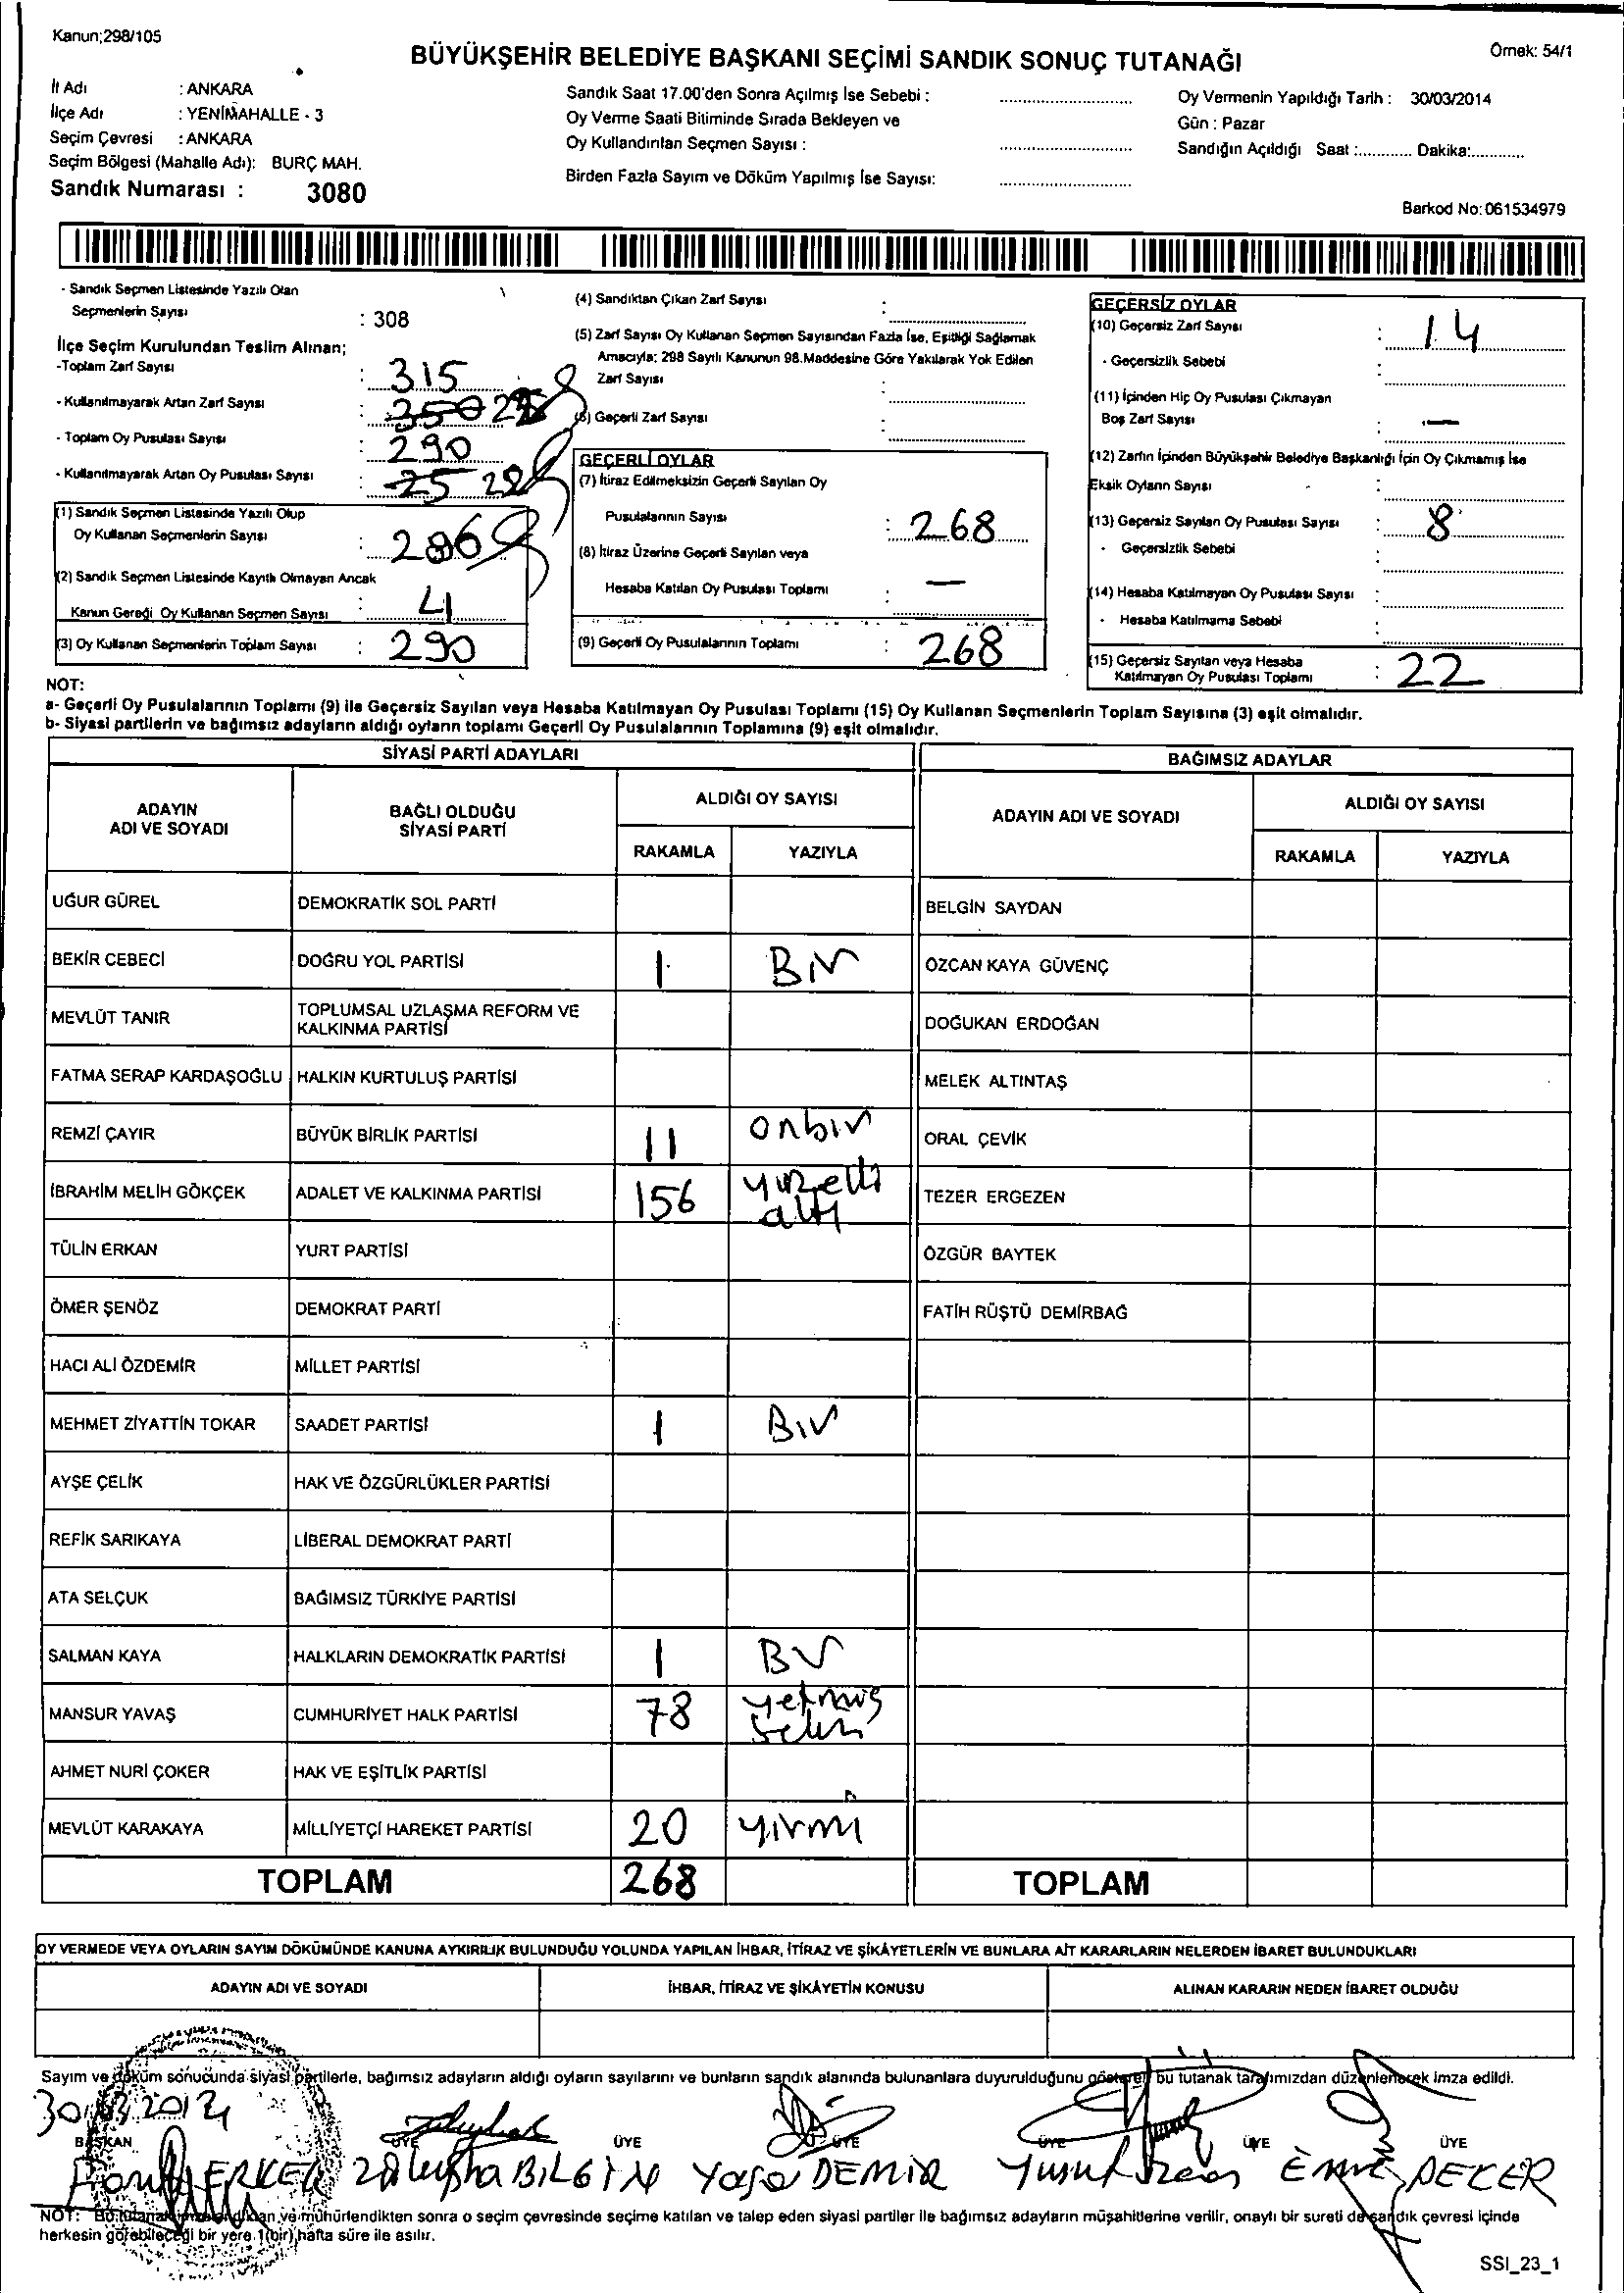 Kanun;298/105
BÜYÜKŞEHİR BELEDİYE BAŞKANI SEÇİMİ SANDIK SONUÇ TUTANAĞI
Örnek: 54/1
İl Adı : ANKARA
İlçe Adı : YENİMAHALLE - 3
Seçim Çevresi : ANKARA
Seçim Bölgesi (Mahalle Adı): BURÇ MAH.
Sandık Numarası : 3080
Sandık Saat 17.00'den Sonra Açılmış İse Sebebi :
Oy Verme Saati Bitiminde Sırada Bekleyen ve
Oy Kullandırılan Seçmen Sayısı :
Birden Fazla Sayım ve Döküm Yapılmış İse Sayısı:
Oy Vermenin Yapıldığı Tarih : 30/03/2014
Gün : Pazar
Sandığın Açıldığı Saat :............ Dakika:............
Barkod No:061534979
- Sandık Seçmen Listesinde Yazılı Olan
Seçmenlerin Sayısı : 308
İlçe Seçim Kurulundan Teslim Alınan;
-Toplam Zarf Sayısı : 315
- Kullanılmayarak Artan Zarf Sayısı :
- Toplam Oy Pusulası Sayısı : 290
- Kullanılmayarak Artan Oy Pusulası Sayısı : 25
(1) Sandık Seçmen Listesinde Yazılı Olup
Oy Kullanan Seçmenlerin Sayısı : 286
(2) Sandık Seçmen Listesinde Kayıtlı Olmayan Ancak
Kanun Gereği Oy Kullanan Seçmen Sayısı : 4
(3) Oy Kullanan Seçmenlerin Toplam Sayısı : 290
(4) Sandıktan Çıkan Zarf Sayısı :
(5) Zarf Sayısı Oy Kullanan Seçmen Sayısından Fazla İse, Eşitliği Sağlamak
Amacıyla; 298 Sayılı Kanunun 98.Maddesine Göre Yakılarak Yok Edilen
Zarf Sayısı :
(6) Geçerli Zarf Sayısı :
GEÇERLİ OYLAR
(7) İtiraz Edilmeksizin Geçerli Sayılan Oy
Pusulalarının Sayısı : 268
(8) İtiraz Üzerine Geçerli Sayılan veya
Hesaba Katılan Oy Pusulası Toplamı : —
(9) Geçerli Oy Pusulalarının Toplamı : 268
GEÇERSİZ OYLAR
(10) Geçersiz Zarf Sayısı : 14
- Geçersizlik Sebebi :
(11) İçinden Hiç Oy Pusulası Çıkmayan
Boş Zarf Sayısı : —
(12) Zarfın İçinden Büyükşehir Belediye Başkanlığı İçin Oy Çıkmamış İse
Eksik Oyların Sayısı :
(13) Geçersiz Sayılan Oy Pusulası Sayısı : 8
- Geçersizlik Sebebi :
(14) Hesaba Katılmayan Oy Pusulası Sayısı :
- Hesaba Katılmama Sebebi :
(15) Geçersiz Sayılan veya Hesaba
Katılmayan Oy Pusulası Toplamı : 22
NOT:
a- Geçerli Oy Pusulalarının Toplamı (9) ile Geçersiz Sayılan veya Hesaba Katılmayan Oy Pusulası Toplamı (15) Oy Kullanan Seçmenlerin Toplam Sayısına (3) eşit olmalıdır.
b- Siyasi partilerin ve bağımsız adayların aldığı oyların toplamı Geçerli Oy Pusulalarının Toplamına (9) eşit olmalıdır.
SİYASİ PARTİ ADAYLARI
ADAYIN ADI VE SOYADI
BAĞLI OLDUĞU SİYASİ PARTİ
ALDIĞI OY SAYISI
RAKAMLA YAZIYLA
BAĞIMSIZ ADAYLAR
ADAYIN ADI VE SOYADI
ALDIĞI OY SAYISI
RAKAMLA YAZIYLA
UĞUR GÜREL DEMOKRATİK SOL PARTİ BELGİN SAYDAN
BEKİR CEBECİ DOĞRU YOL PARTİSİ 1 Bir ÖZCAN KAYA GÜVENÇ
MEVLÜT TANIR TOPLUMSAL UZLAŞMA REFORM VE KALKINMA PARTİSİ DOĞUKAN ERDOĞAN
FATMA SERAP KARDAŞOĞLU HALKIN KURTULUŞ PARTİSİ MELEK ALTINTAŞ
REMZİ ÇAYIR BÜYÜK BİRLİK PARTİSİ 11 onbir ORAL ÇEVİK
İBRAHİM MELİH GÖKÇEK ADALET VE KALKINMA PARTİSİ 156 yüzelli altı TEZER ERGEZEN
TÜLİN ERKAN YURT PARTİSİ ÖZGÜR BAYTEK
ÖMER ŞENÖZ DEMOKRAT PARTİ FATİH RÜŞTÜ DEMİRBAĞ
HACI ALİ ÖZDEMİR MİLLET PARTİSİ
MEHMET ZİYATTİN TOKAR SAADET PARTİSİ 1 Bir
AYŞE ÇELİK HAK VE ÖZGÜRLÜKLER PARTİSİ
REFİK SARIKAYA LİBERAL DEMOKRAT PARTİ
ATA SELÇUK BAĞIMSIZ TÜRKİYE PARTİSİ
SALMAN KAYA HALKLARIN DEMOKRATİK PARTİSİ 1 Bir
MANSUR YAVAŞ CUMHURİYET HALK PARTİSİ 78 yetmiş sekiz
AHMET NURİ ÇOKER HAK VE EŞİTLİK PARTİSİ
MEVLÜT KARAKAYA MİLLİYETÇİ HAREKET PARTİSİ 20 yirmi
TOPLAM 268 TOPLAM
OY VERMEDE VEYA OYLARIN SAYIM DÖKÜMÜNDE KANUNA AYKIRILIK BULUNDUĞU YOLUNDA YAPILAN İHBAR, İTİRAZ VE ŞİKÂYETLERİN VE BUNLARA AİT KARARLARIN NELERDEN İBARET BULUNDUKLARI
ADAYIN ADI VE SOYADI İHBAR, İTİRAZ VE ŞİKÂYETİN KONUSU ALINAN KARARIN NEDEN İBARET OLDUĞU
Sayım ve döküm sonucunda siyasi partilerle, bağımsız adayların aldığı oyların sayılarını ve bunların sandık alanında bulunanlara duyurulduğunu gösteren bu tutanak tarafımızdan düzenlenerek imza edildi.
30/03/2014
BAŞKAN ÜYE ÜYE ÜYE ÜYE ÜYE ÜYE
ERKEK BİLGİN Yaşar DEMİR Yusuf Emre PEKER
NOT: Bu tutanak imzalandıktan ve mühürlendikten sonra o seçim çevresinde seçime katılan ve talep eden siyasi partiler ile bağımsız adayların müşahitlerine verilir, onaylı bir sureti de sandık çevresi içinde
herkesin görebileceği bir yere 1(bir) hafta süre ile asılır.
SSI_23_1